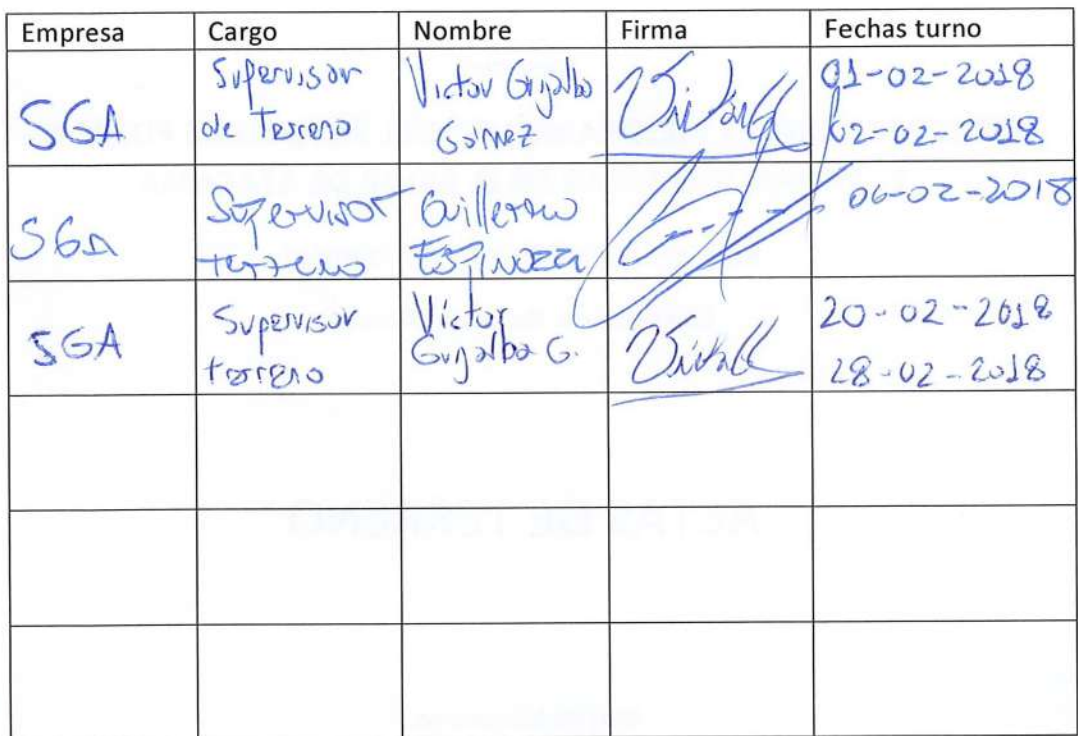 Empresa Cargo Nombre Firma Fechas turno
SGA Supervisor de Terreno Victor Grijalba Gómez 01-02-2018 02-02-2018
SGA Supervisor terreno Guillermo Espinoza 06-02-2018
SGA Supervisor terreno Víctor Grijalba G. 20-02-2018 28-02-2018